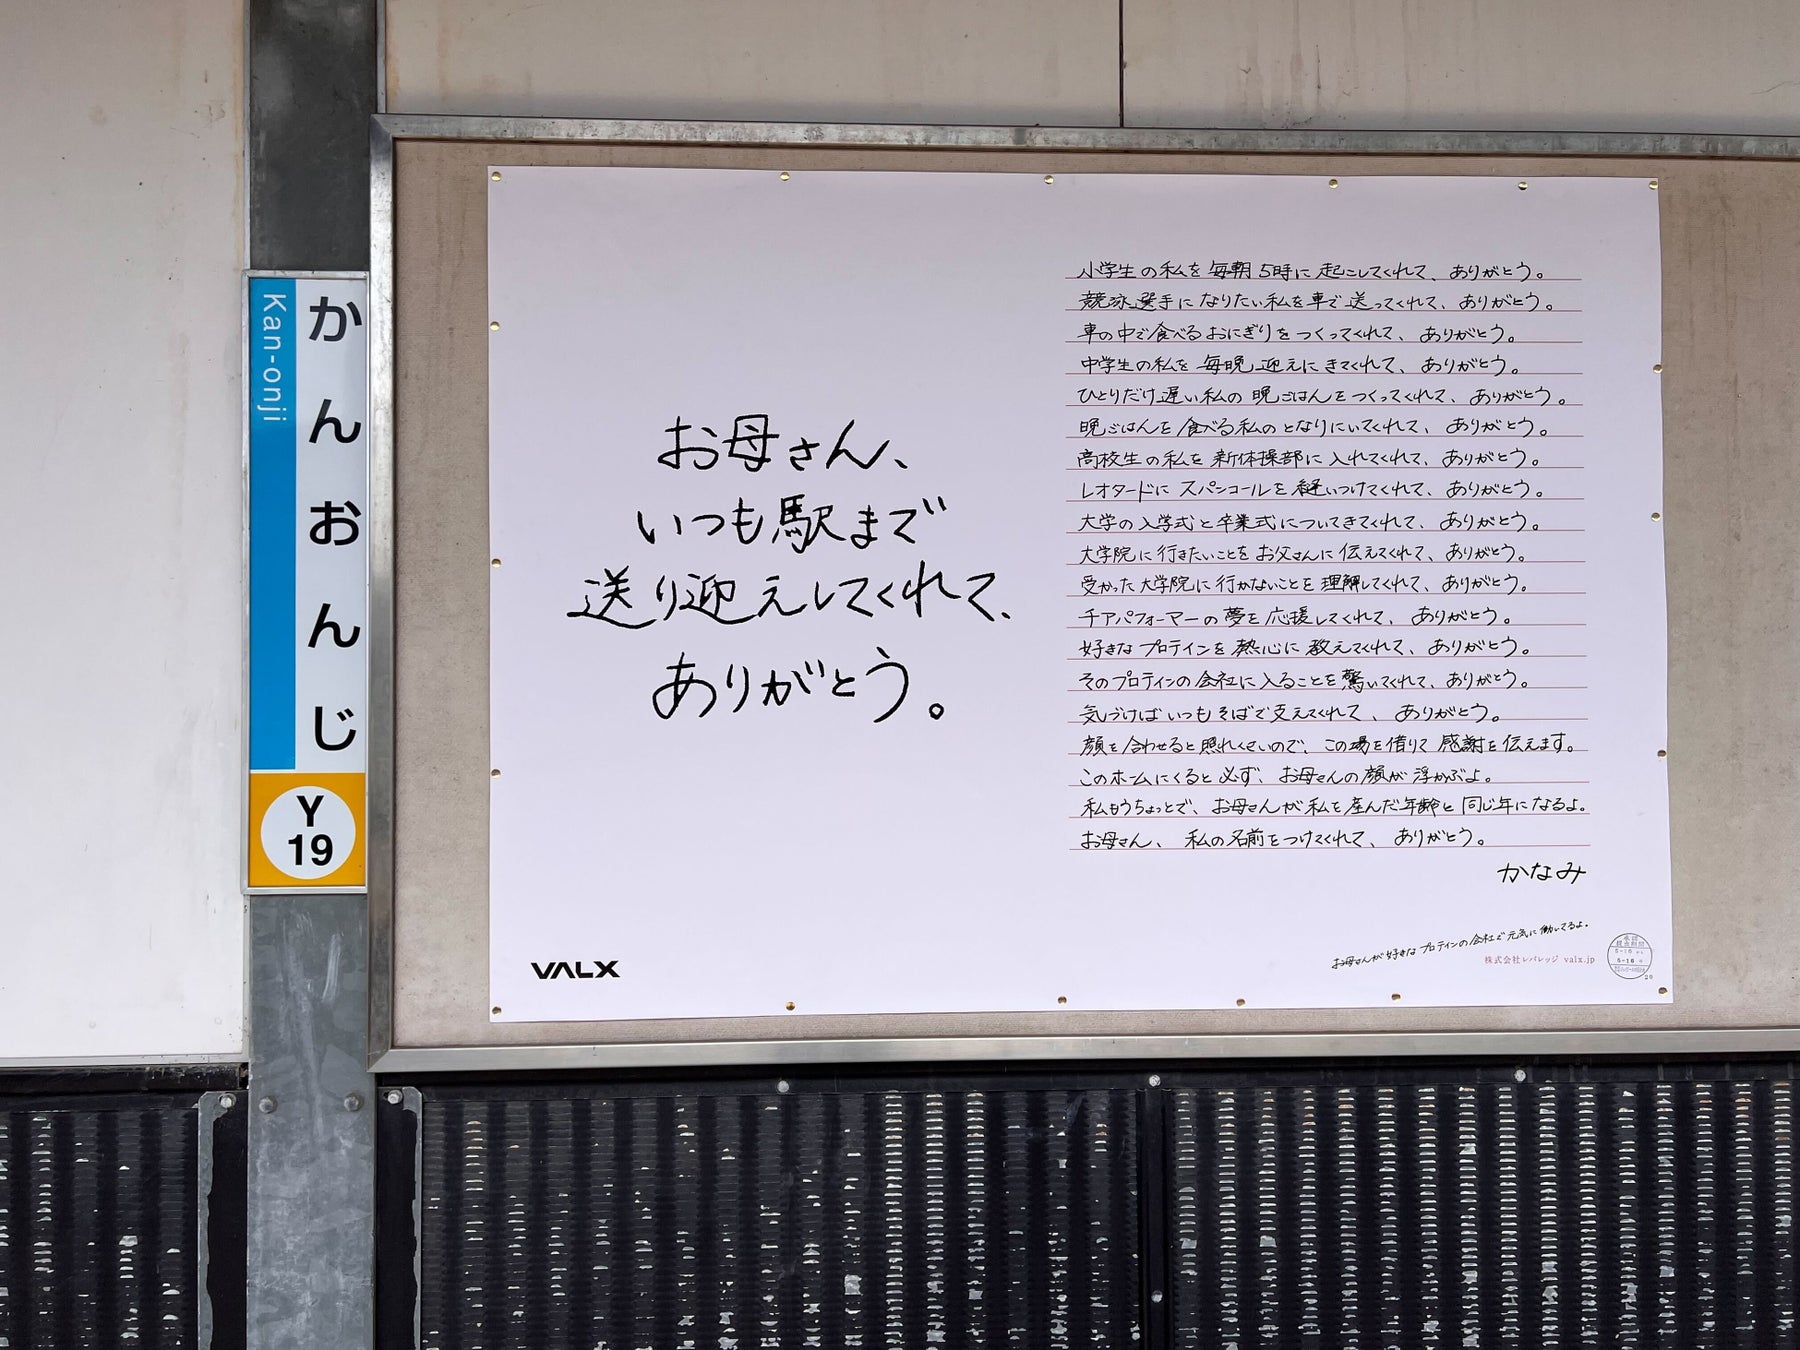 かんおんじ
Kan-onji
Y
19
お母さん、
いつも駅まで
送り迎えしてくれて、
ありがとう。
小学生の私を毎朝5時に起こしてくれて、ありがとう。
競泳選手になりたい私を車で送ってくれて、ありがとう。
車の中で食べるおにぎりをつくってくれて、ありがとう。
中学生の私を毎晩迎えにきてくれて、ありがとう。
ひとりだけ遅い私の晩ごはんをつくってくれて、ありがとう。
晩ごはんを食べる私のとなりにいてくれて、ありがとう。
高校生の私を新体操部に入れてくれて、ありがとう。
レオタードにスパンコールを縫いつけてくれて、ありがとう。
大学の入学式と卒業式についてきてくれて、ありがとう。
大学院に行きたいことをお父さんに伝えてくれて、ありがとう。
受かった大学院に行かないことを理解してくれて、ありがとう。
チアパフォーマーの夢を応援してくれて、ありがとう。
好きなプロテインを熱心に教えてくれて、ありがとう。
そのプロテインの会社に入ることを驚いてくれて、ありがとう。
気づけばいつもそばで支えてくれて、ありがとう。
顔を合わせると照れくさいので、この場を借りて感謝を伝えます。
このホームにくると必ず、お母さんの顔が浮かぶよ。
私もうちょっとで、お母さんが私を産んだ年齢と同じ年になるよ。
お母さん、私の名前をつけてくれて、ありがとう。
かなみ
お母さんが好きなプロテインの会社で元気に働いてるよ。
株式会社レバレッジ valx.jp
VALX